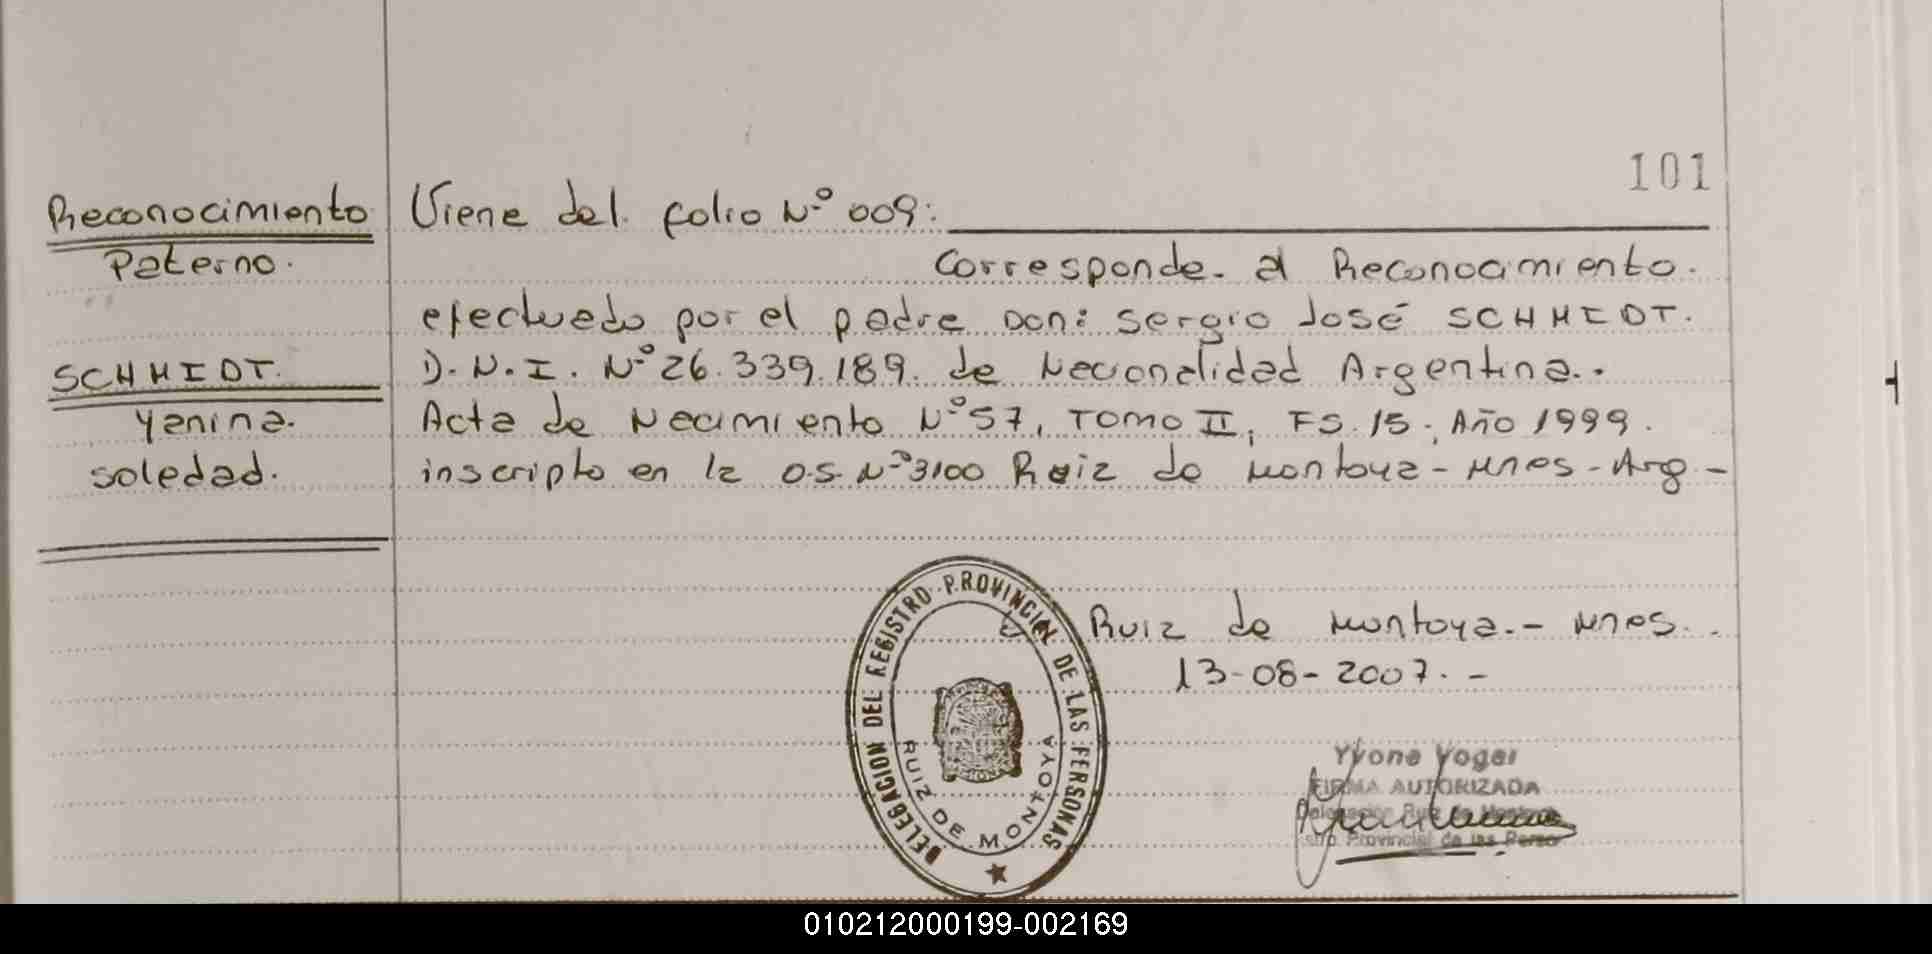 101
Reconocimiento Viene del folio Nº 009:
Paterno. Corresponde. al Reconocimiento.
efectuado por el padre Don: Sergio José SCHMIDT.
SCHMIDT. D.N.I. Nº 26.339.189. de Nacionalidad Argentina..
Yanina. Acta de Nacimiento Nº 57, TOMO II, FS. 15., Año 1999.
Soledad. inscripto en la O.S. Nº 3100 Ruiz de Montoya - Mnes - Arg. -
DELEGACION DEL REGISTRO PROVINCIAL DE LAS PERSONAS
RUIZ DE MONTOYA
Ruiz de Montoya. - Mnes..
13-08-2007. -
Yvone Voger
FIRMA AUTORIZADA
Delegación Ruiz de Montoya
Provincial de las Perso
010212000199-002169